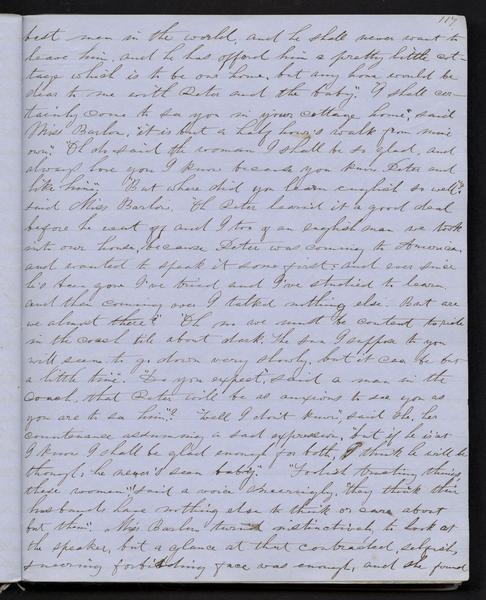 117
best man in the world, and he shall never want to
leave him, and he has offerd him a pretty little cot-
tage which is to be our home, but any home would be
dear to me with Peter and the baby". "I shall cer-
tainly come to see you in your cottage home", said
Miss Barlow, "it is but a half hour's walk from mine
own". "Oh oh, said the woman I shall be so glad, and
always love you I know because you knew Peter and
like him". "But where did you learn english so well?"
said Miss Barlow. "Oh Peter learned it a good deal
before he went of and I too of an englishman we took
into our house, because Peter was coming to America
and wanted to speak it some first; and ever since
he's been gone I've tried and I've studied to learn
and then coming over I talked nothing else. But are
we almost there?" "Oh no we must be content to ride
in the coach till about dark. The sun I suppose to you
will seem to go down very slowly, but it can be but
a little time". "Do you expect", said a man in the
coach, that Peter will be as anxious to see you as
you are to see him"? "Well I don't know", said she, her
countenance assuming a sad expression, "but if he isn't
I know I shall be glad enough for both, I think he will be
though; he never's seen baby". "Foolish trusting things
these women" said a voice sneeringly, "they think their
husbands have nothing else to think or care about
but them". Miss Barlow turned instinctively to look at
the speaker, but a glance at that contracted, selfish,
sneering forbidding face was enough, and she found